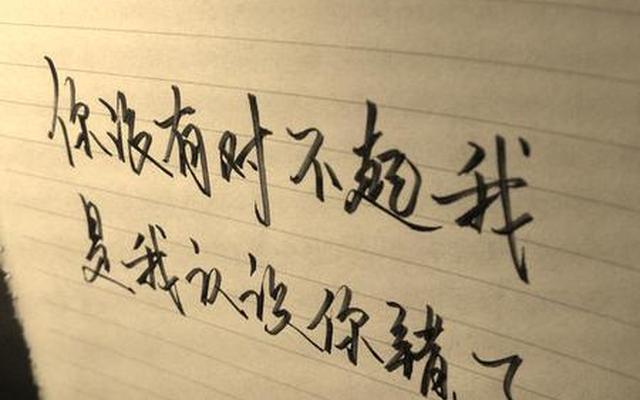 你没有对不起我
是我认识你错了